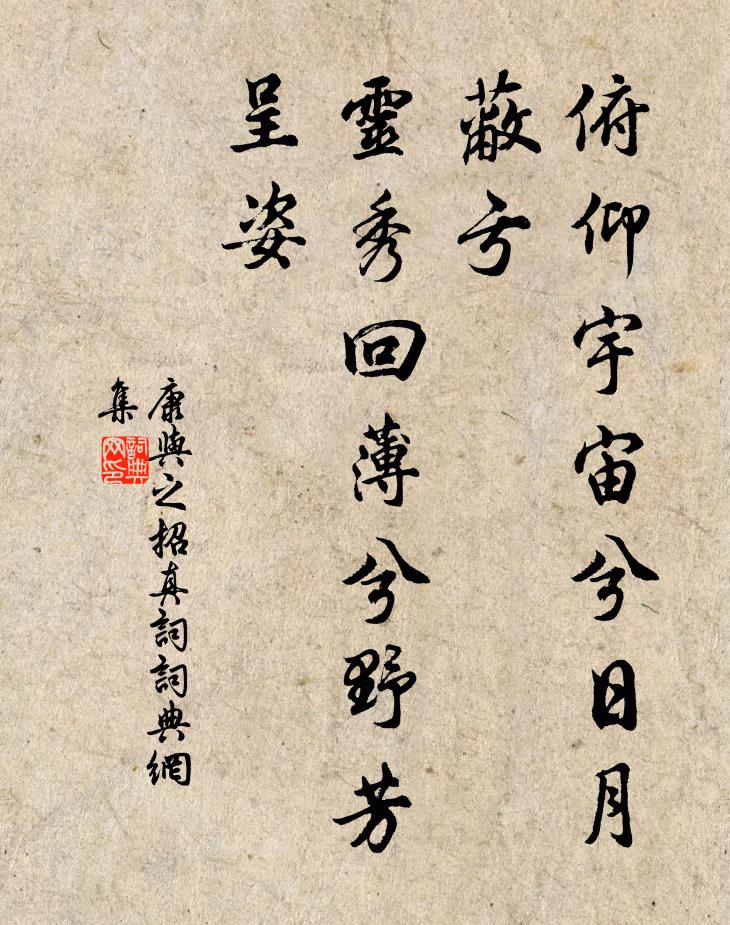 俯仰宇宙兮日月
蔽亏
靈秀回薄兮野芳
呈姿
康與之招真詞詞典網
集
詞典
网印